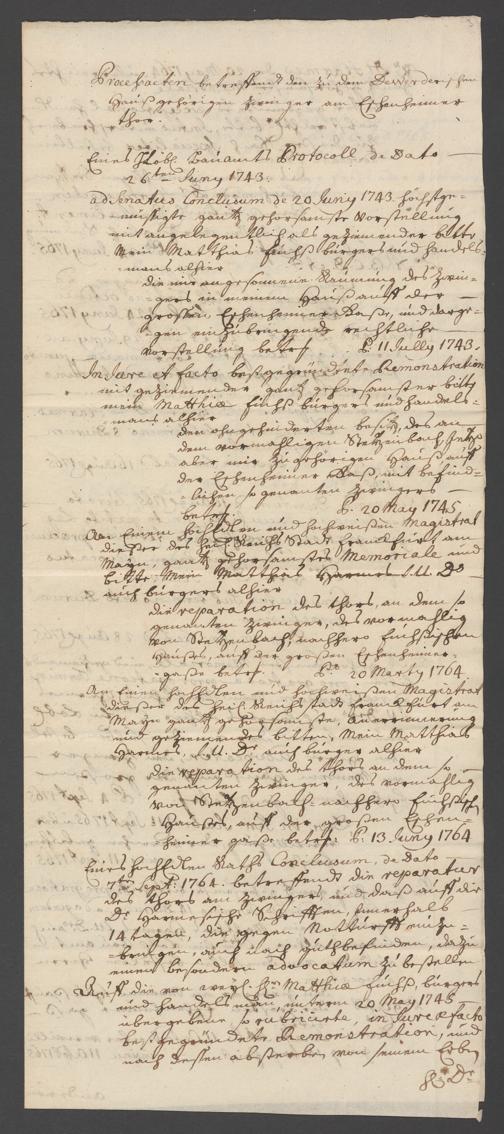 Praeacten betreffendt den zu dem Dewerderischen
Hauß gehörigen zwinger am Eschenheimer
thor.
Eines Löbl. Bauamts Protocoll, de Dato
26ten Juny 1743.
ad Senatus Conclusum de 20 Juny 1743. höchstge-
müssigte gantz gehorsamste Vorstellung
mit angelegentlich als geziemender bitte
Mein Matthias Fuchß bürgers und handels-
mans alhier
die mir angesonnene Räumung des Zwin-
gers in meinem Hauß auff der
großen Eschenheimer Gaße, und darge-
gen einzubringende rechtliche
Vorstellung betref. P. 11 Jully 1743.
In Jure et facto bestgegründete Remonstration
mit geziemender gantz gehorsamster bitte
mein Matthiae Fuchß bürgers und handels-
mans alhier
den ohngehinderten besitz, des an
dem vormahligen Stetzenbach, jetzo
aber mir zugehörigen Hauß auff
der Eschenheimer Gaß, mit befind-
lichen so genanten Zwingers
betref. P. 20 May 1745.
An Einem hochedlen und hochweißen Magistrat
dießer des heil. Reichs Stadt Franckfurt am
Mayn, gantz gehorsamstes Memoriale und
bitte, Mein Matthias Harnes J.U. Ds
auch bürgers alhier
die reparation des thors, an dem so
genanten Zwinger, des vormahlig
von Stetzenbach, nachhero Fuchsischen
Haußes, auff der großen Eschenheimer-
gaße betref. P. 20 Marty 1764.
An Einen hochedlen und hochweißen Magistrat
dießer des heil. Reichs stadt Franckfurt am
Mayn gantz gehorsamste
und geziemendes bitten, Mein Matthias
Harnes, J.U. Ds auch bürger alhier
die reparation des thors an dem so
genanten Zwinger, des vormahlig
von Stetzenbach, nachhero Fuchsisch
Haußes, auff der großen Eschen-
heimer gaße betref. P. 13 Juny 1764
Eines hochedlen Raths Conclusum, de dato
7ten Sept. 1764. betreffendt die reparatur
des thors am Zwingers, und daß auff die
Ds Harnesische Schrifften, innerhalb
14 tagen, die gegen Notturfft einzu-
bringen, auch nach guthbefinden, dazu
einen besondern advocatum zu bestellen
Auff die von weyl. Hrn Matthiae Fuchß, bürgers
und handels man, unterm 20 May 1745
übergebene so rubricirte, in Jure et facto
bestgegründete Remonstration, und
nach dessen absterben, von seinem Erben
Ds